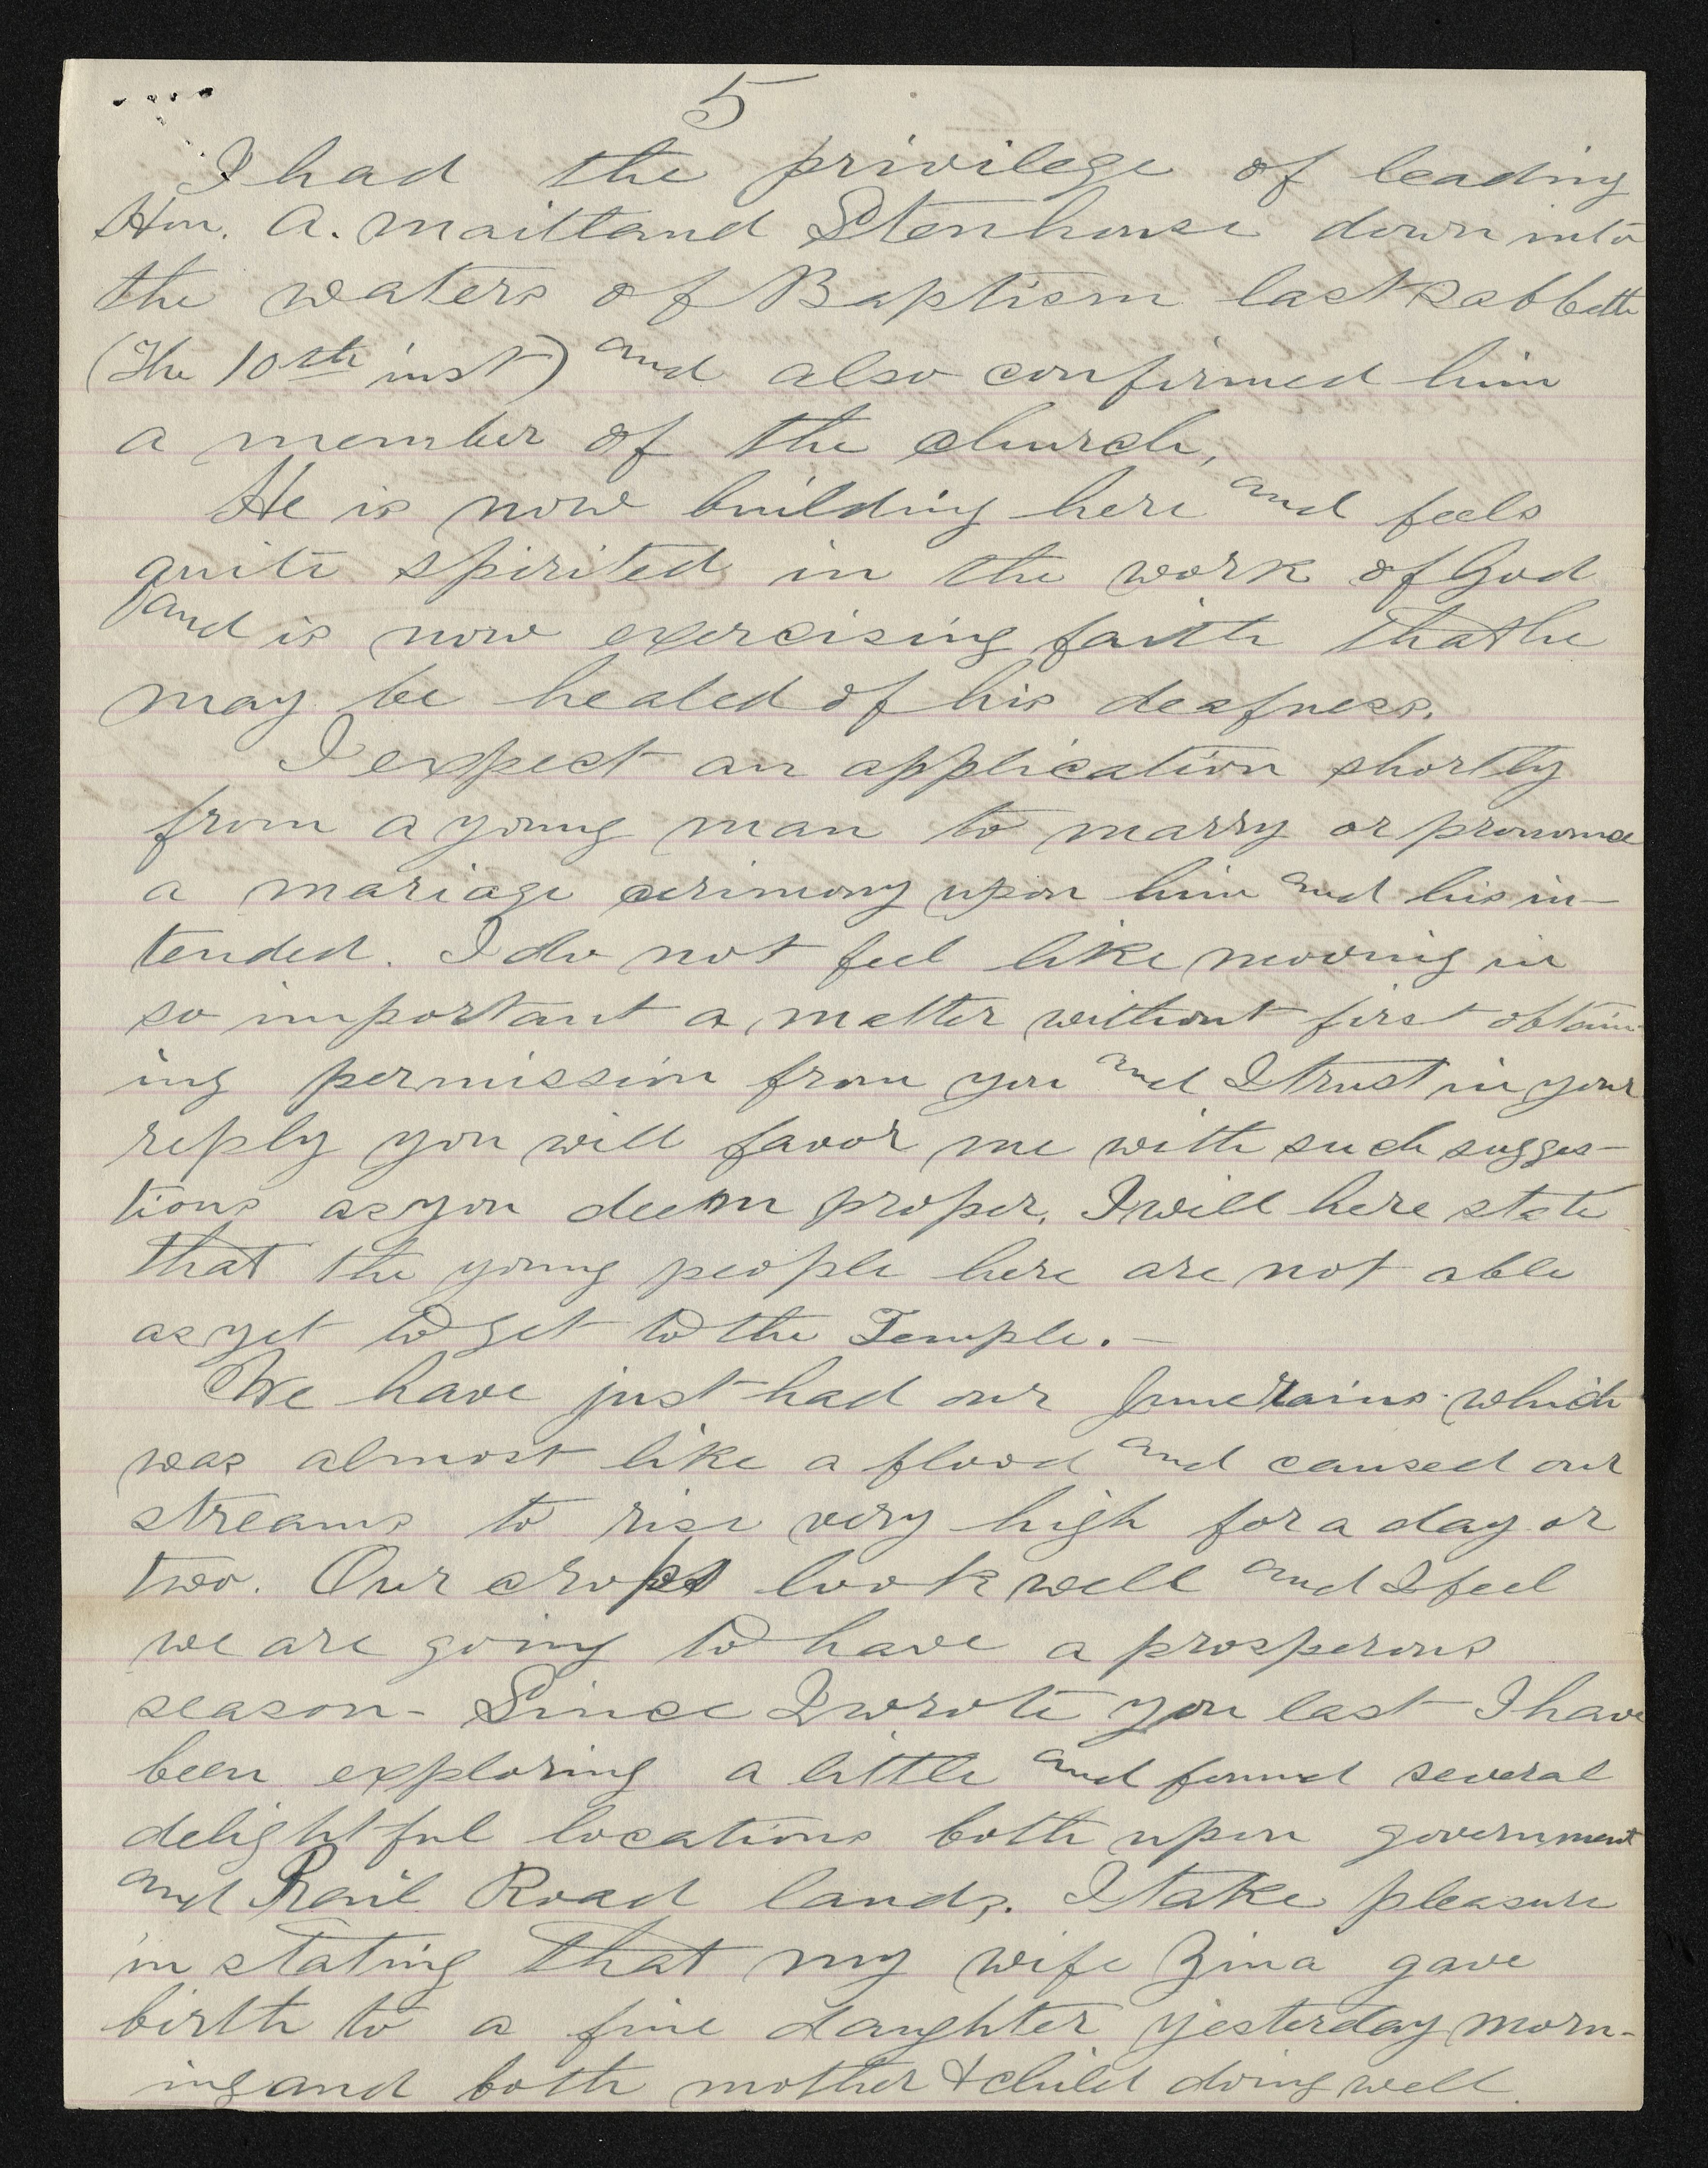 5
I had the privilege of leading
Hon. A. Maitland Stenhouse down into
the waters of Baptism last sabbath
(The 10th inst) and also confirmed him
a member of the church,
He is now building here and feels
quite spirited in the work of God
and is now exercising faith that he
may be healed of his deafness.
I expect an application shortly
from a young man to marry or pronounce
a mariage cerimony upon him and his in-
tended. I do not feel like mooving in
so important a matter without first obtain-
ing permission from you and I trust in your
reply you will favor me with such sugges-
tions as you deem proper. I will here state
that the young people here are not able
as yet to get to the Temple. —
We have just had our June rains which
was almost like a flood and caused our
streams to rise very high for a day or
two. Our crops look well and I feel
we are going to have a prosperous
season - Since I wrote you last I have
been exploring a little and found several
delightful locations both upon government
and Rail Road lands. I take pleasure
in stating that my wife Zina gave
birth to a fine daughter yesterday morn-
ing and both mother & child doing well.